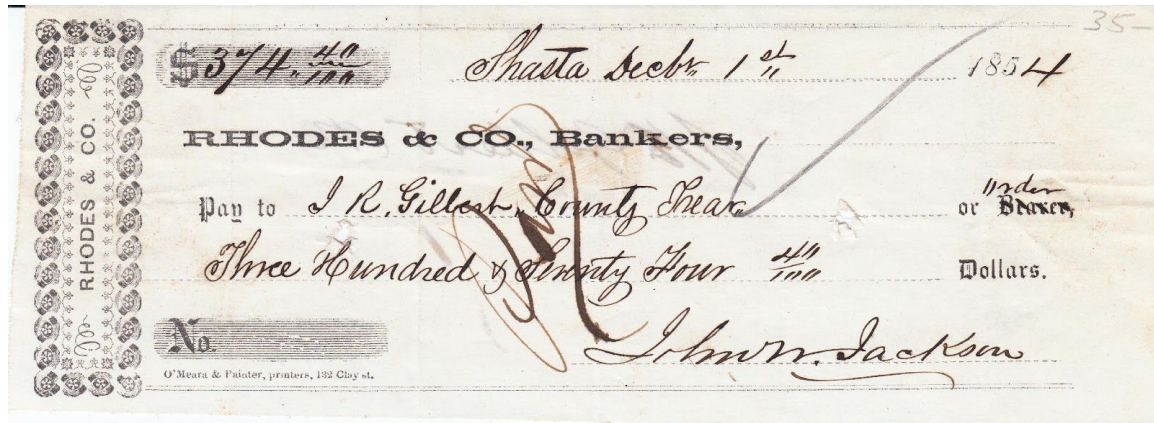 35-
$374. 40/100 Shasta Decbr 1st 1854
RHODES & CO.
RHODES & CO., Bankers,
Pay to I R. Gilbert, County Trear or order Bearer,
Three Hundred & Seventy Four 40/100 Dollars.
No.
John W. Jackson
O'Meara & Painter, printers, 132 Clay st.